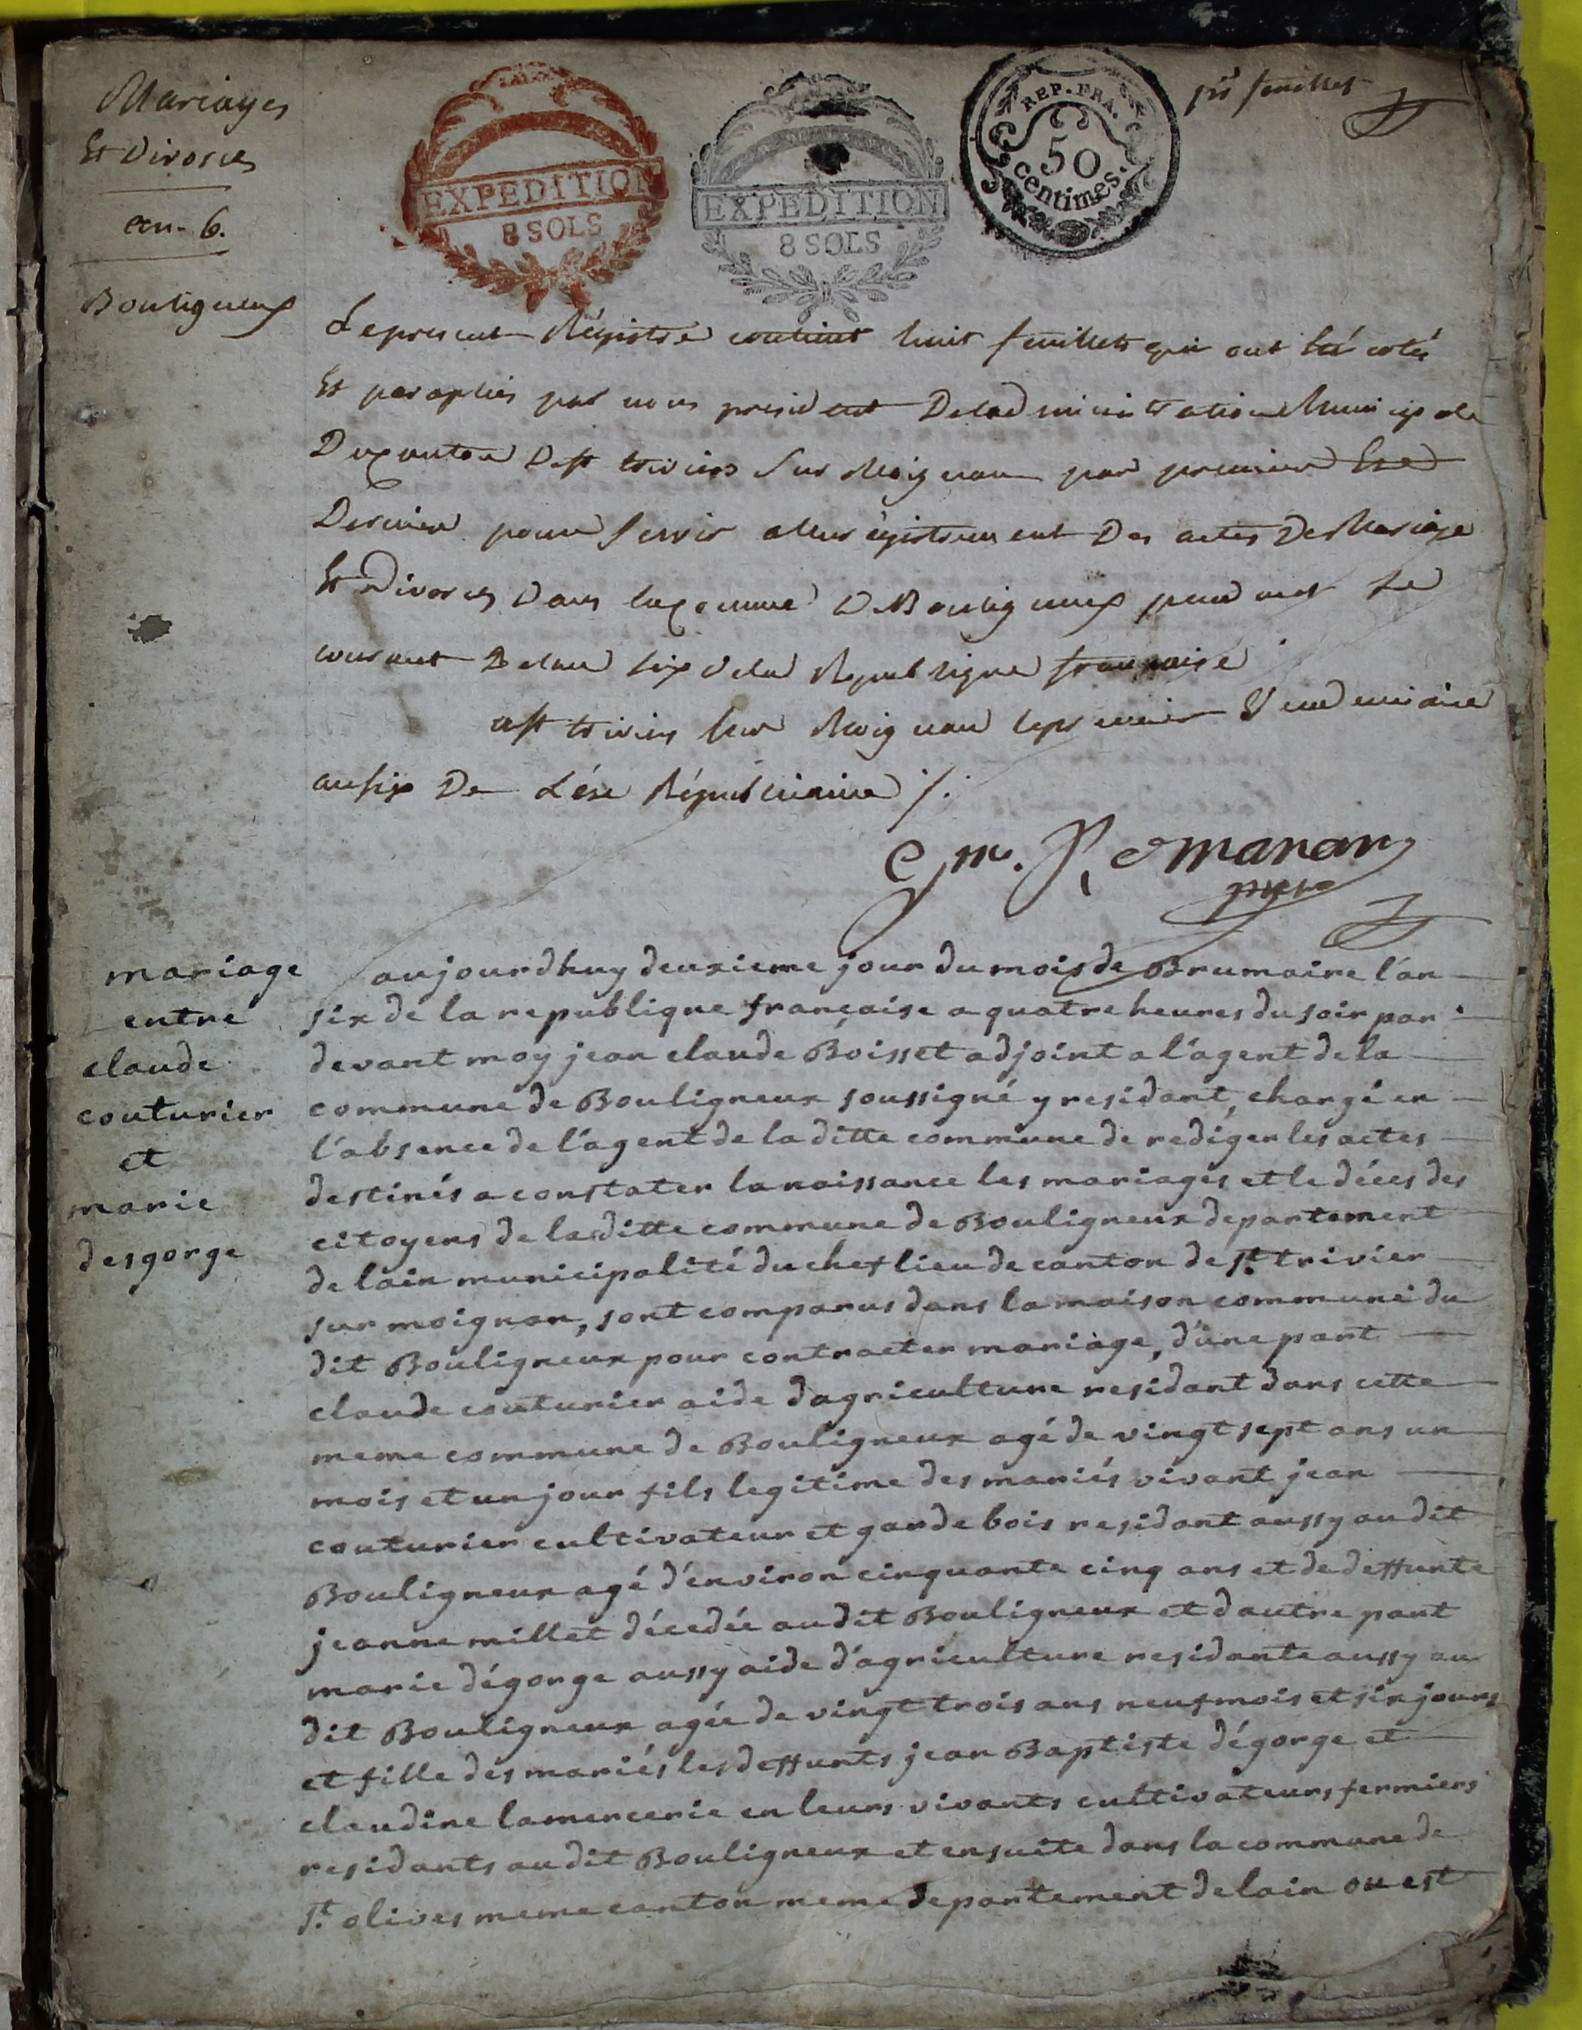 Mariages
Et Divorces
an 6.
Bouligneux
EXPEDITION
8 SOLS
EXPEDITION
8 SOLS
REP. FRA.
50
centimes.
pr feuillet
Le present Régistre contient huit feuillets qui ont été cotés
Et paraphés par nous president De lad ministration Municipale
Du canton De st trivier Sur Moignan par premier Et
Dernier pour servir a l'enrégistrement Des actes De Mariage
Et Divorces Dans la commune De Bouligneux pendant Le
courant De lan six de la Republique francaise
a st trivier sur Moignan le premier Vendemiaire
an six De L'ére Républicaine /.
mariage
entre
claude
couturier
et
marie
desgorge
aujourdhuy deuxieme jour du mois de Brumaire l'an
six de la republique française a quatre heures du soir par
devant moy jean claude Boisset adjoint a l'agent de la
commune de Bouligneux soussigné y residant, chargé en
l'absence de l'agent de la ditte commune de rediger les actes
destinés a constater la naissance les mariages et le décés des
citoyens de la ditte commune de Bouligneux departement
de lain municipalité du chef lieu de canton de st. trivier
sur moignan, sont comparus dans la maison commune du
dit Bouligneux pour contracter mariage, d'une part
claude couturier aide d'agriculture residant dans cette
meme commune de Bouligneux agé de vingt sept ans un
mois et un jour fils legitime des mariés vivant jean
couturier cultivateur et garde bois residant aussy au dit
Bouligneux agé d'environ cinquante cinq ans et de deffunte
jeanne millet décedée au dit Bouligneux et d'autre part
marie dégorge aussy aide d'agriculture residante aussy au
dit Bouligneux agée de vingt trois ans neuf mois et six jours
et fille des mariés les deffunts jean Baptiste dégorge et
claudine lamercerie en leurs vivants cultivateurs fermiers
residants au dit Bouligneux et ensuite dans la commune de
st. olives meme canton meme departement de lain ou est